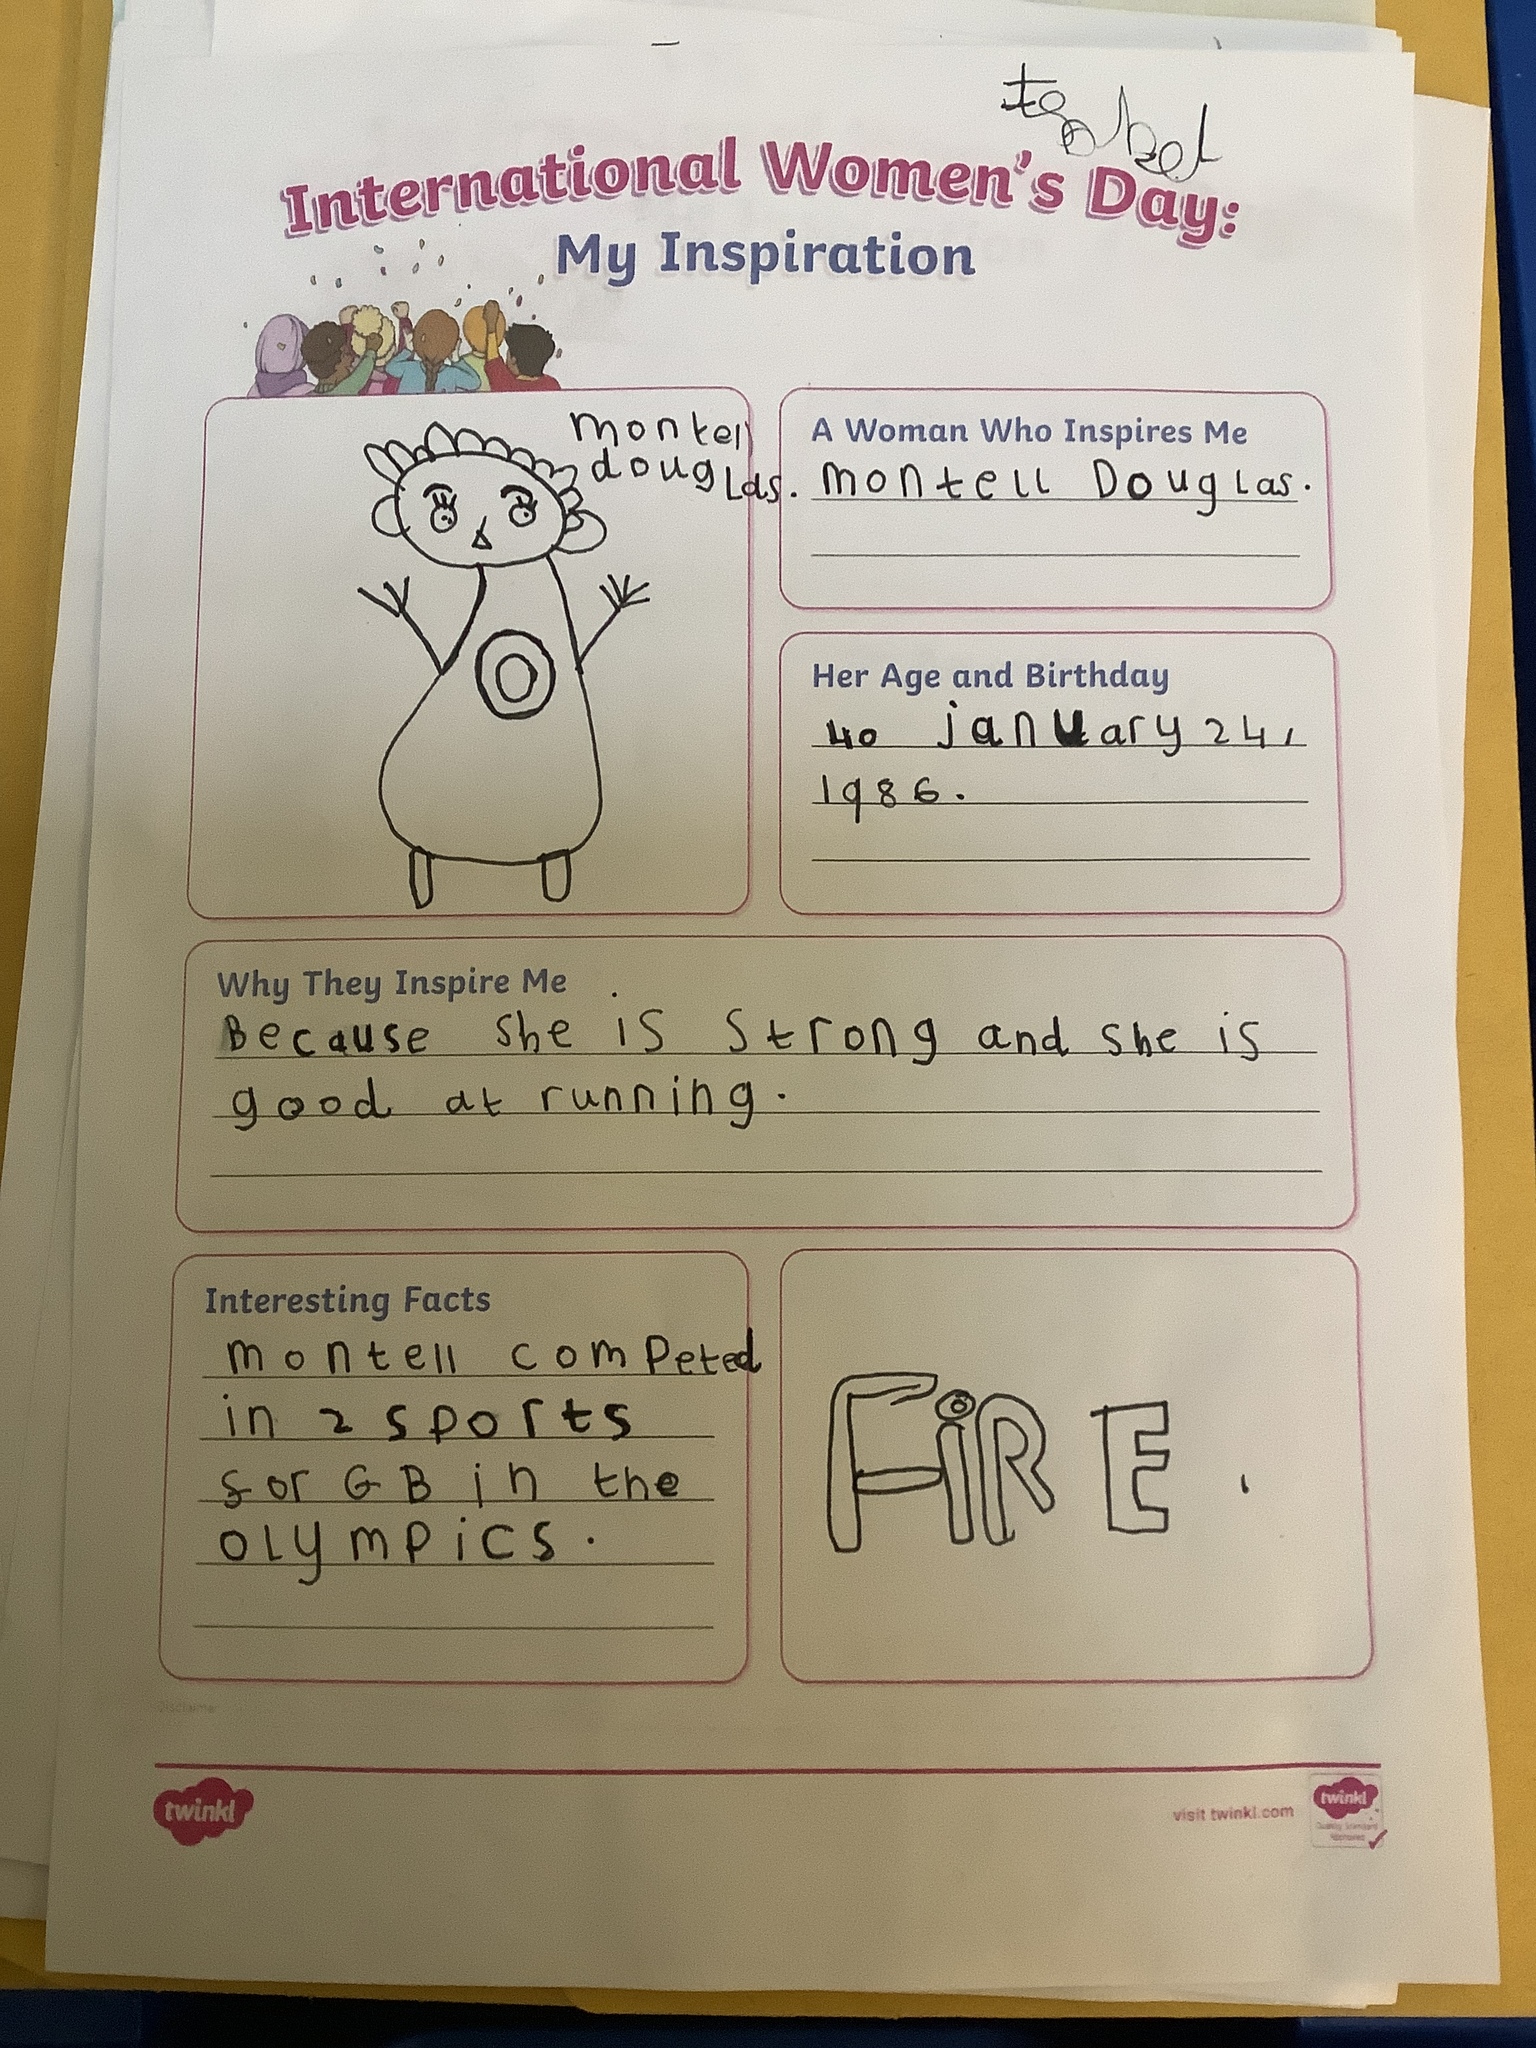 International Women's Day:
My Inspiration
montell
douglas.
A Woman Who Inspires Me
montell Douglas.
Her Age and Birthday
40 january 24,
1986.
Why They Inspire Me
Because she is strong and she is
good at running.
Interesting Facts
montell competed
in 2 sports
for GB in the
olympics.
FiRE.
Disclaimer
twinkl
visit twinkl.com
twinkl
Quality Standard
Approved